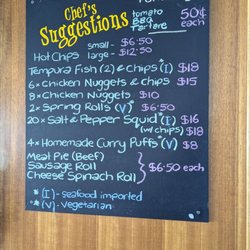 Chef's
Suggestions
tomato
BBQ
Tartare
50¢
each
small - $6.50
Hot Chips large - $12.50
Tempura Fish (2) & Chips *(I) $18
6 x Chicken Nuggets & Chips $15
8 x Chicken Nuggets $10
2 x Spring Rolls *(V) $6.50
20 x Salt & Pepper Squid *(I) $16
(w/ chips) $18
4 x Homemade Curry Puffs *(V) $8
Meat Pie (Beef)
Sausage Roll
Cheese Spinach Roll
$6.50 each
*(I) - seafood imported
*(V) - vegetarian